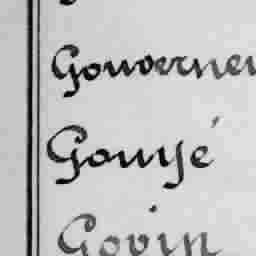 Gouverneu
Gouyé
Govin